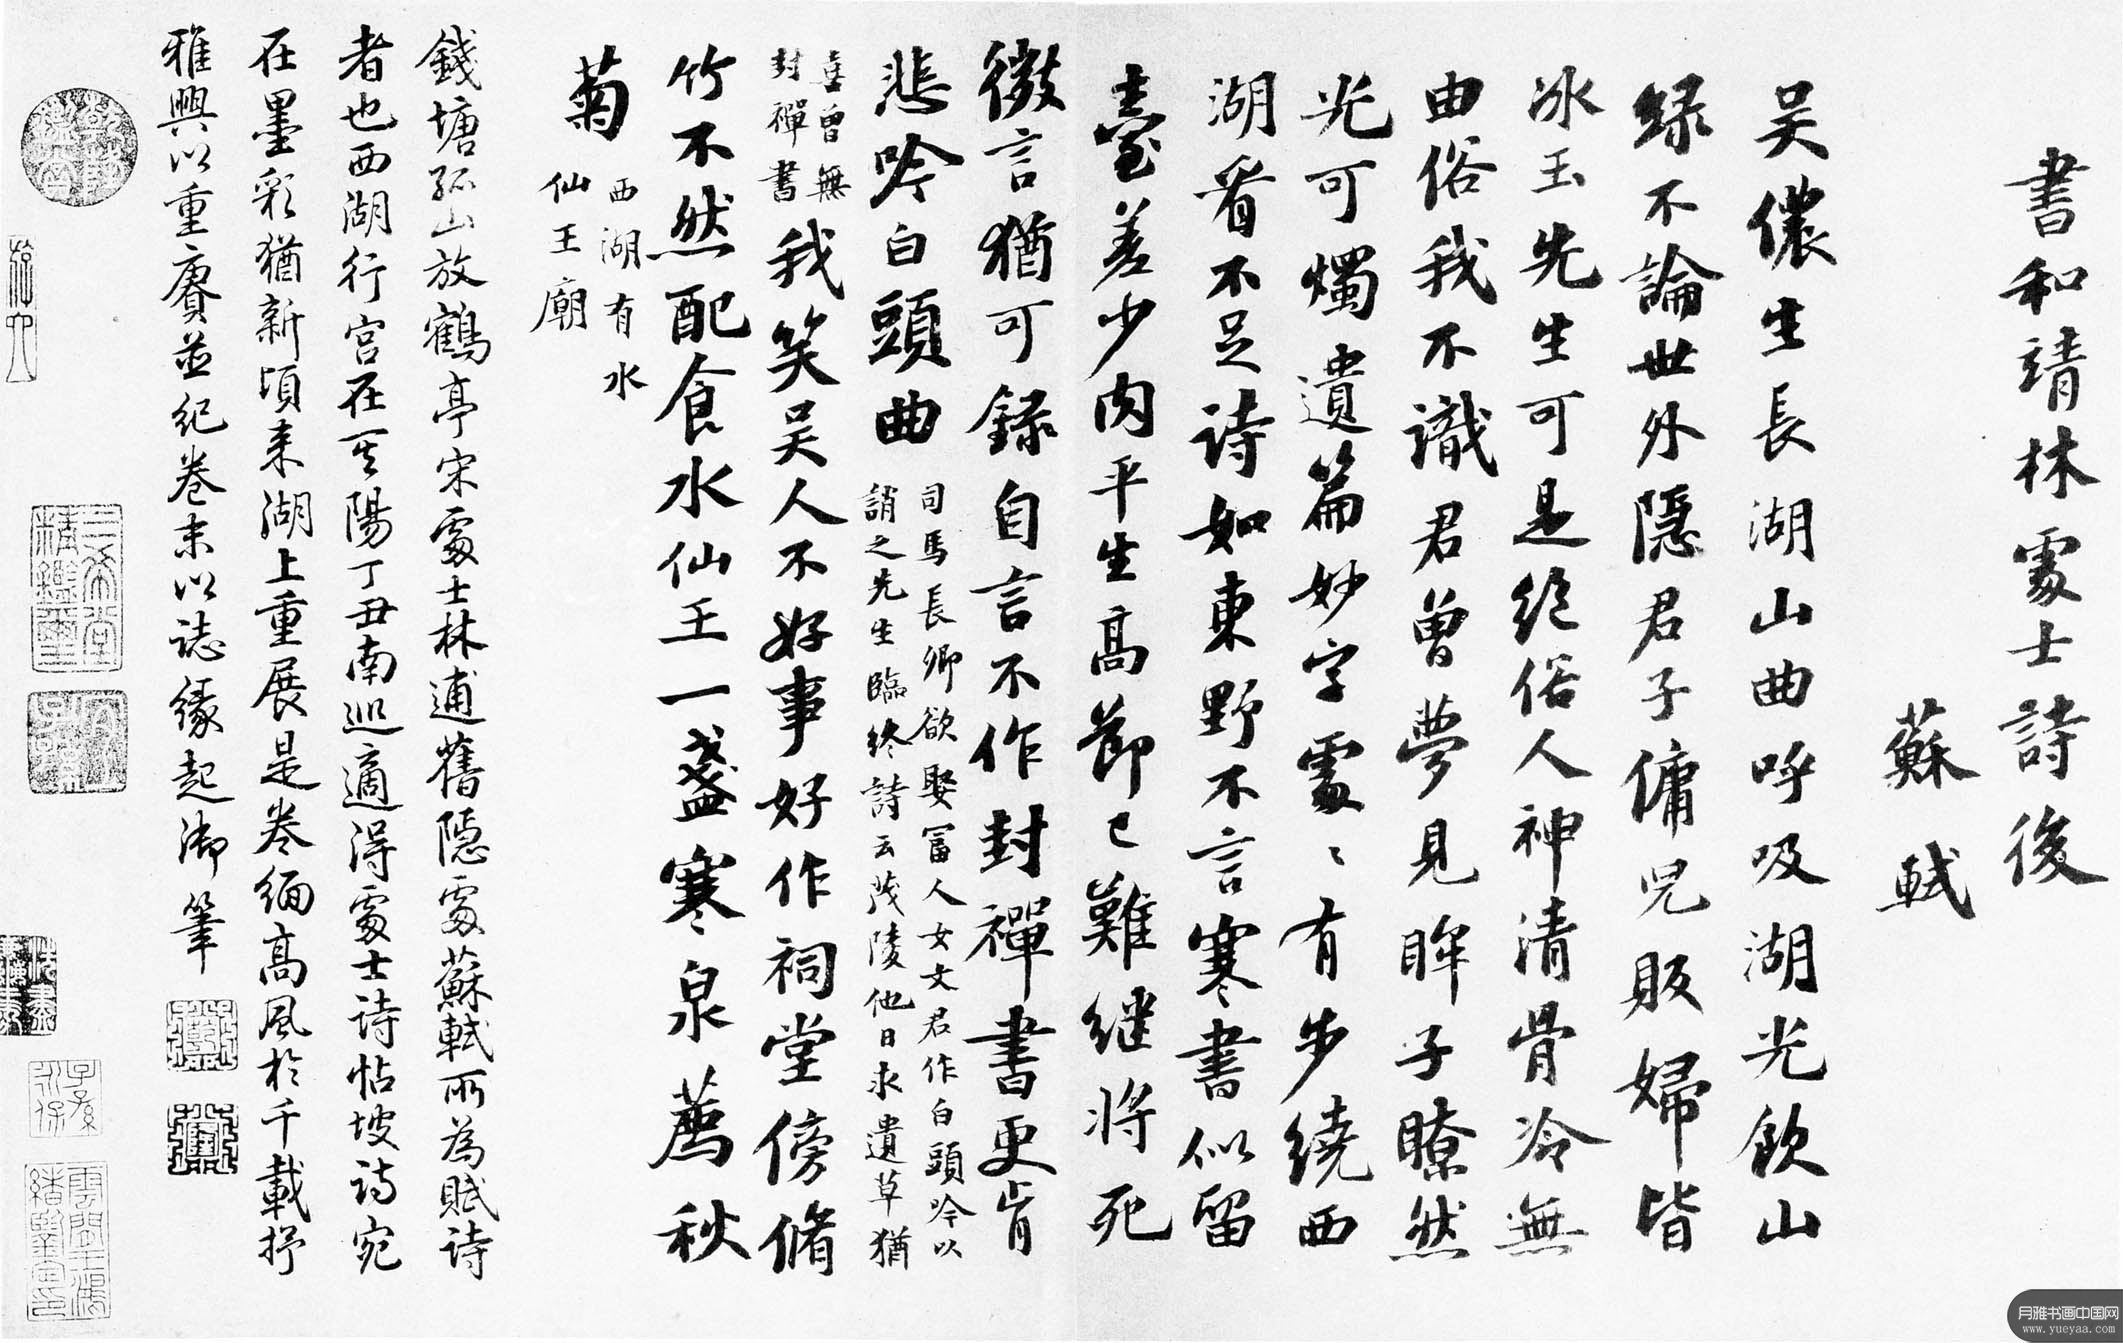 書和靖林處士詩後
蘇軾
吴儂生長湖山曲呼吸湖光飲山
緑不論世外隱君子傭兒販婦皆
冰玉先生可是絕俗人神清骨冷無
由俗我不識君曾夢見眸子瞭然
光可燭遺篇妙字處〻有步繞西
湖看不足詩如東野不言寒書似留
臺差少肉平生高節已難継將死
微言猶可録自言不作封禪書更肯
悲吟白頭曲
司馬長卿欲娶富人女文君作白頭吟以
誚之先生臨終詩云茂陵他日求遺草猶
喜曾無
封禪書
我笑吴人不好事好作祠堂傍脩
竹不然配食水仙王一盞寒泉薦秋
菊
西湖有水
仙王廟
錢塘孤山放鶴亭宋處士林逋舊隱處蘇軾所為賦詩
者也西湖行宮在其陽丁丑南巡適得處士詩帖坡詩宛
在墨彩猶新頃来湖上重展是卷緬高風於千載抒
雅興以重賡並紀卷末以誌緣起御筆
乾隆鑑賞
三希堂精鑑璽
宜子孫
子孫永保
雲間王鴻緒鑒定印
月雅书画中国网
www.yueyaa.com